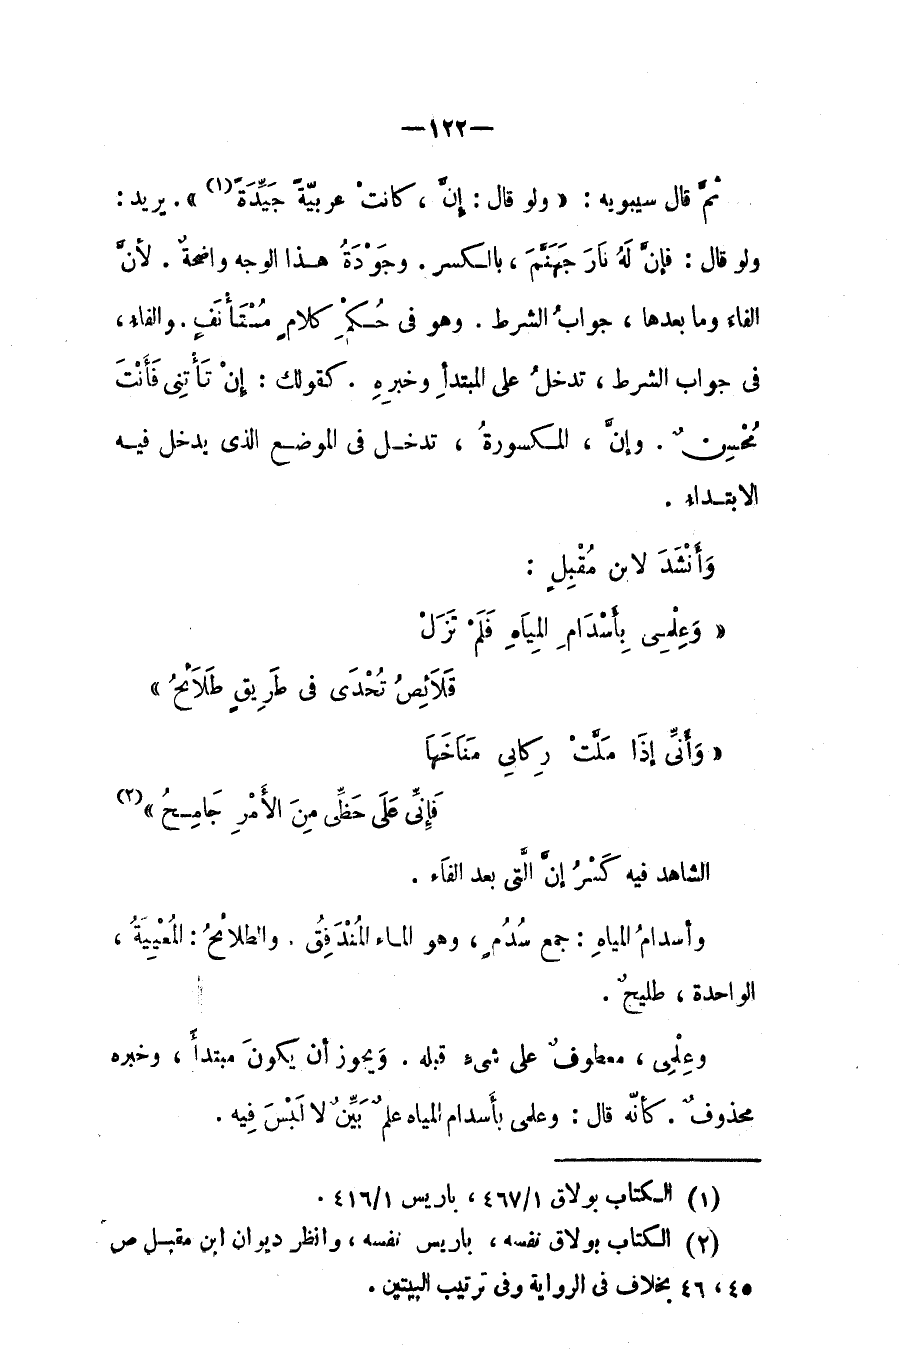 —١٢٢—
ثمَّ قال سيبويه : « ولو قال : إِنَّ ، كانتْ عربيّةً جَيِّدَةً(١) » . يريد :
ولو قال : فإنَّ لَهُ نَارَ جَهَنَّمَ ، بالكسر . وجَوْدَةُ هذا الوجه واضحةٌ . لأنَّ
الفاءَ وما بعدها ، جوابُ الشرط . وهو فى حُكمِ كلامٍ مُسْتَأْنَفٍ . والفاء ،
فى جواب الشرط ، تدخلُ على المبتدأِ وخبرِهِ . كقولك : إِنْ تَأْتِنِى فَأَنْتَ
مُحْسِنٌ . وإنَّ ، المكسورةُ ، تدخل فى الموضع الذى يدخل فيه
الابتداء .
وَأَنْشَدَ لابن مُقْبِلٍ :
« وَعِلْمِى بِأَسْدَامِ المِيَاهِ فَلَمْ تَزَلْ
قَلَائِصُ تُحْدَى فى طَرِيقٍ طَلَائحُ »
« وَأَنِّى إِذَا مَلَّتْ رِكابِى مَنَاخَهَا
فَإِنِّى عَلَى حَظِّى مِنَ الأَمْرِ جَامِحُ »(٢)
الشاهد فيه كَسْرُ إنَّ الَّتى بعد الفاء .
وأسدامُ المياهِ : جمع سُدُمٍ ، وهو الماء المُنْدَفِقُ . والطلائحُ : المُعْيِيَةُ ،
الواحدة ، طليحٌ .
وعِلْمِى ، معطوفٌ على شىء قبله . وَيجوز أن يكونَ مبتدأً ، وخبره
محذوفٌ . كأنّه قال : وعلمى بأَسدام المياه علمٌ بَيِّنٌ لا لَبْسَ فِيه .
(١) الكتاب بولاق ٤٦٧/١ ، باريس ٤١٦/١ .
(٢) الكتاب بولاق نفسه ، باريس نفسه ، وانظر ديوان ابن مقبل ص
٤٥ ، ٤٦ بخلاف فى الرواية وفى ترتيب البيتين .